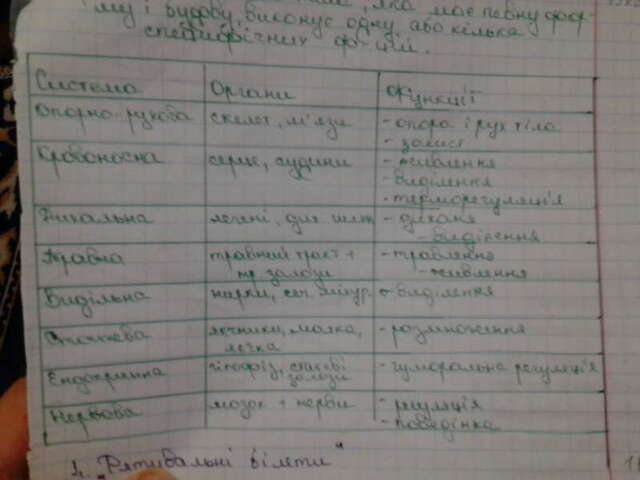 му і будову, виконує одну або кілька
специфічних ф-цій.
Система Органи Функції
Опорно-рухова скелет, м'язи - опора і рух тіла
- захист
Кровоносна серце, судини - живлення
- виділення
- терморегуляція
Дихальна легені, дих. шлях - дихання
- виділення
Травна травний тракт + - травлення
тр. залози - живлення
Видільна нирки, сеч. міхур - виділення
Статева яєчники, матка, - розмноження
яєчка
Ендокринна гіпофіз, статеві - гуморальна регуляція
залози
Нервова мозок + нерви - регуляція
- поведінка
"Рятувальні білети"